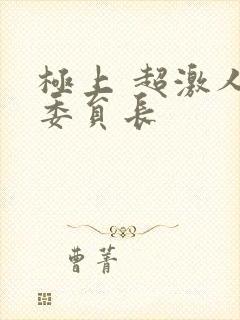 極上 超激人
委員長
曹菁